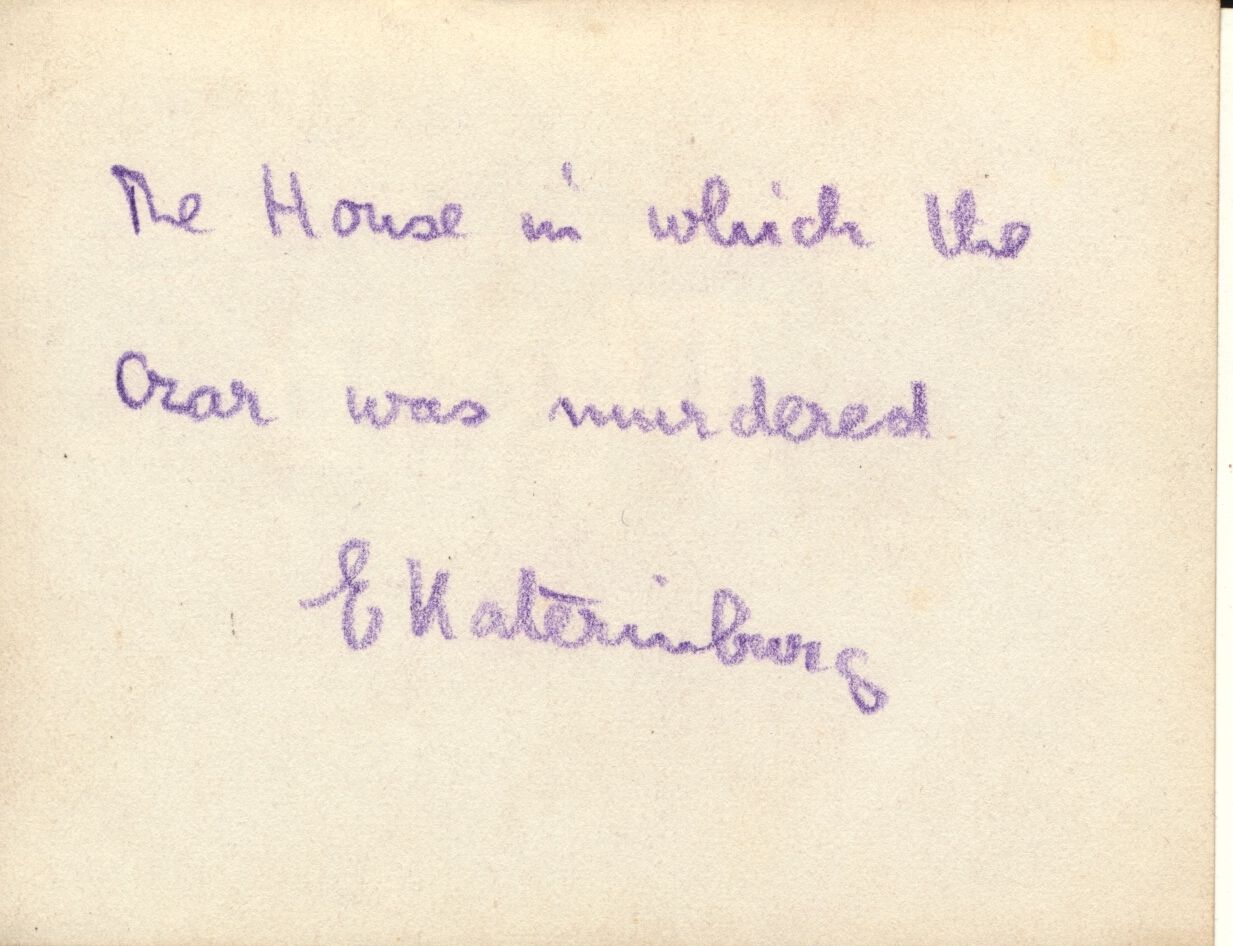 The House in which the
Czar was murdered
Ekaterinburg